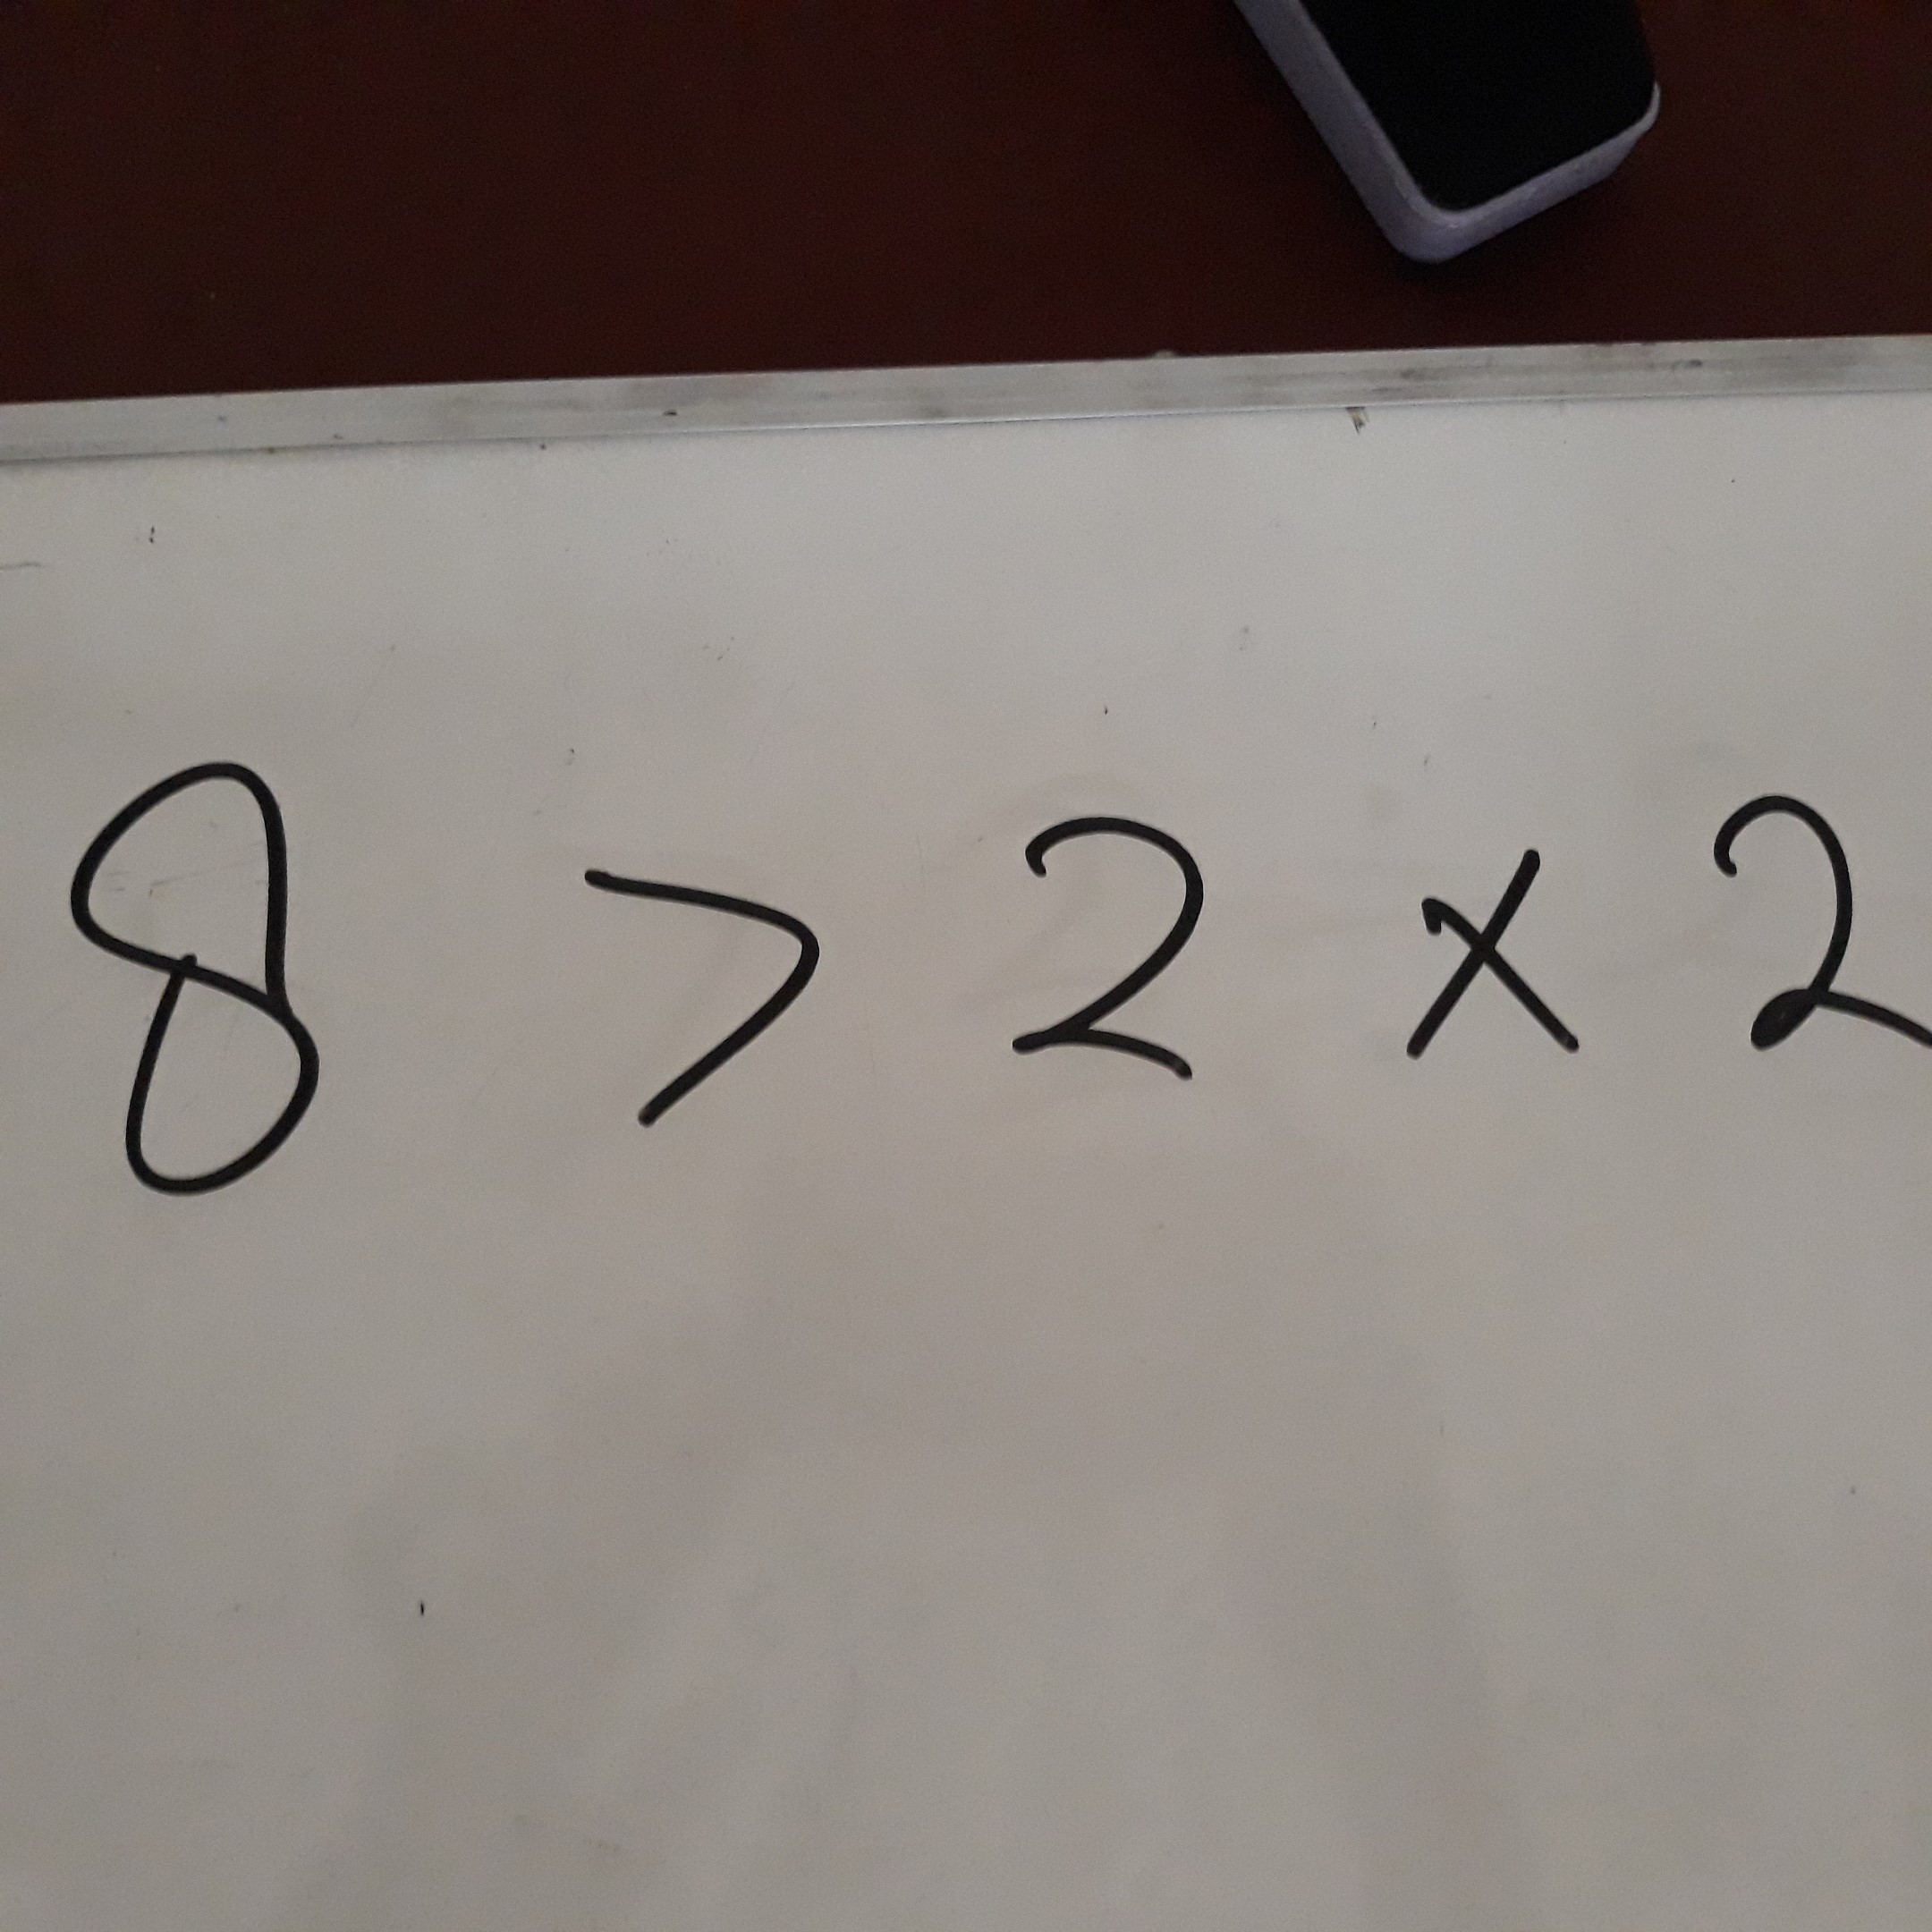 8 > 2 × 2